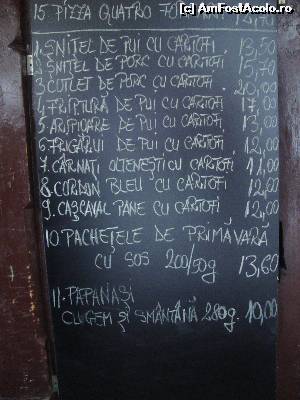 © AmFostAcolo.ro
15 PIZZA QUATRO
1. ȘNIȚEL DE PUI CU CARTOFI 13,50
2. ȘNIȚEL DE PORC CU CARTOFI 15,70
3 COTLET DE PORC CU CARTOFI 20,00
4 FRIPTURĂ DE PUI CU CARTOFI 17,00
5 ARIPIOARE DE PUI CU CARTOFI 13,00
6 FRIGĂRUI DE PUI CU CARTOFI 12,00
7. CÂRNAȚI OLTENEȘTI CU CARTOFI 11,00
8 CORDON BLEU CU CARTOFI 12,00
9. CAȘCAVAL PANE CU CARTOFI 12,00
10 PACHEȚELE DE PRIMĂVARĂ
CU SOS 200/50g 13,60
11. PAPANAȘI
CU GEM ȘI SMÂNTÂNĂ 280g. 10,00